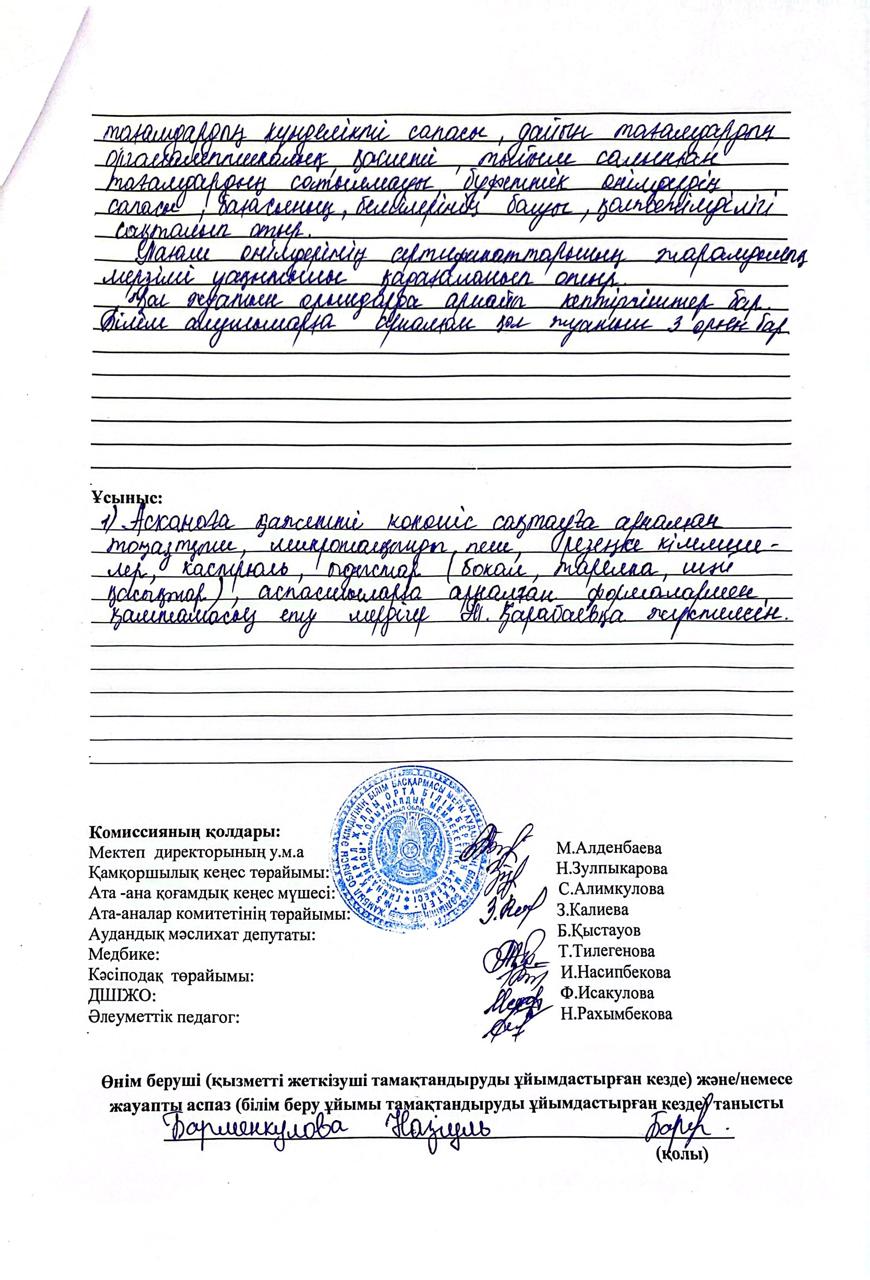 тағамдардың күнделікті сапасы, дайын тағамдардың
органолептикалық қасиеті, тыйым салынған
тағамдардың сатылмауы буфеттік өнімдердің
сапасы, бағасының, белгілерінің болуы, қолжетімділігі
сақталып отыр.
Тағам өнімдерінің сертификаттарының жарамдылық
мерзімі уақытылы қадағаланып отыр.
Қол жуатын орындарға арнайы кептіргіштер бар.
Білім алушыларға арналған қол жуатын 3 орын бар
Ұсыныс:
1) Асханаға қажетті көкөніс сақтауға арналған
тоңазтқыш, микротолқынды пеш, резеңке кілемше-
лер, кастрюль, ыдыстар (бокал, тарелка, шәй
қасықтар), аспазшыларға арналған формалармен
қамтамасыз ету мердігер Қарабаевқа жүктелсін.
Комиссияның қолдары:
Мектеп директорының у.м.а М.Алденбаева
Қамқоршылық кеңес төрайымы: Н.Зулпыкарова
Ата -ана қоғамдық кеңес мүшесі: С.Алимкулова
Ата-аналар комитетінің төрайымы: З.Калиева
Аудандық мәслихат депутаты: Б.Қыстауов
Медбике: Т.Тилегенова
Кәсіподақ төрайымы: И.Насипбекова
ДШІЖО: Ф.Исакулова
Әлеуметтік педагог: Н.Рахымбекова
Өнім беруші (қызметті жеткізуші тамақтандыруды ұйымдастырған кезде) және/немесе
жауапты аспаз (білім беру ұйымы тамақтандыруды ұйымдастырған кезде) танысты
Барменкулова Назгуль
(қолы)